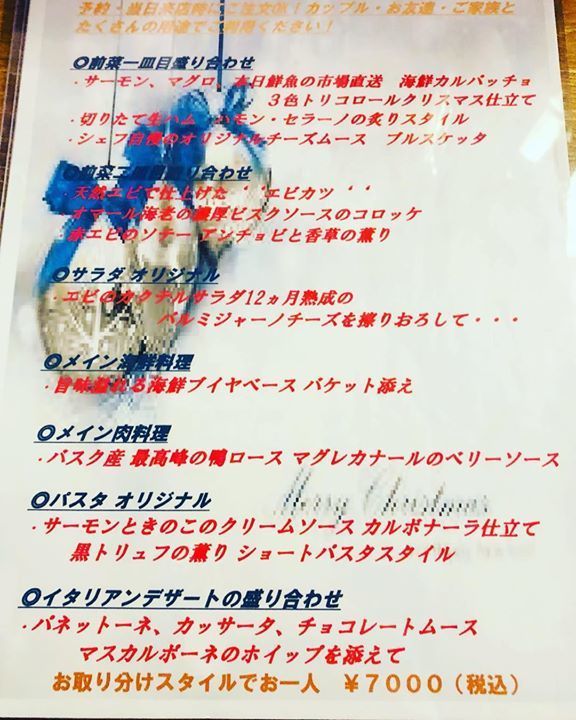 予約・当日来店時にご注文OK！カップル・お友達・ご家族と
たくさんの用途でご利用ください！
◎前菜一皿目盛り合わせ
・サーモン、マグロ、本日鮮魚の市場直送　海鮮カルパッチョ
３色トリコロールクリスマス仕立て
・切りたて生ハム　ハモン・セラーノの炙りスタイル
・シェフ自慢のオリジナルチーズムース　ブルスケッタ
◎前菜二皿目盛り合わせ
・天然エビで仕上げた‘‘エビカツ‘‘
・オマール海老の濃厚ビスクソースのコロッケ
赤エビのソテー アンチョビと香草の薫り
◎サラダ オリジナル
・エビのカクテルサラダ12ヵ月熟成の
パルミジャーノチーズを擦りおろして・・・
◎メイン海鮮料理
・旨味溢れる海鮮ブイヤベース バケット添え
◎メイン肉料理
・バスク産 最高峰の鴨ロース マグレカナールのベリーソース
Merry Christmas
◎パスタ オリジナル
・サーモンときのこのクリームソース カルボナーラ仕立て
黒トリュフの薫り ショートパスタスタイル
◎イタリアンデザートの盛り合わせ
・パネットーネ、カッサータ、チョコレートムース
マスカルポーネのホイップを添えて
お取り分けスタイルでお一人　￥７０００（税込）